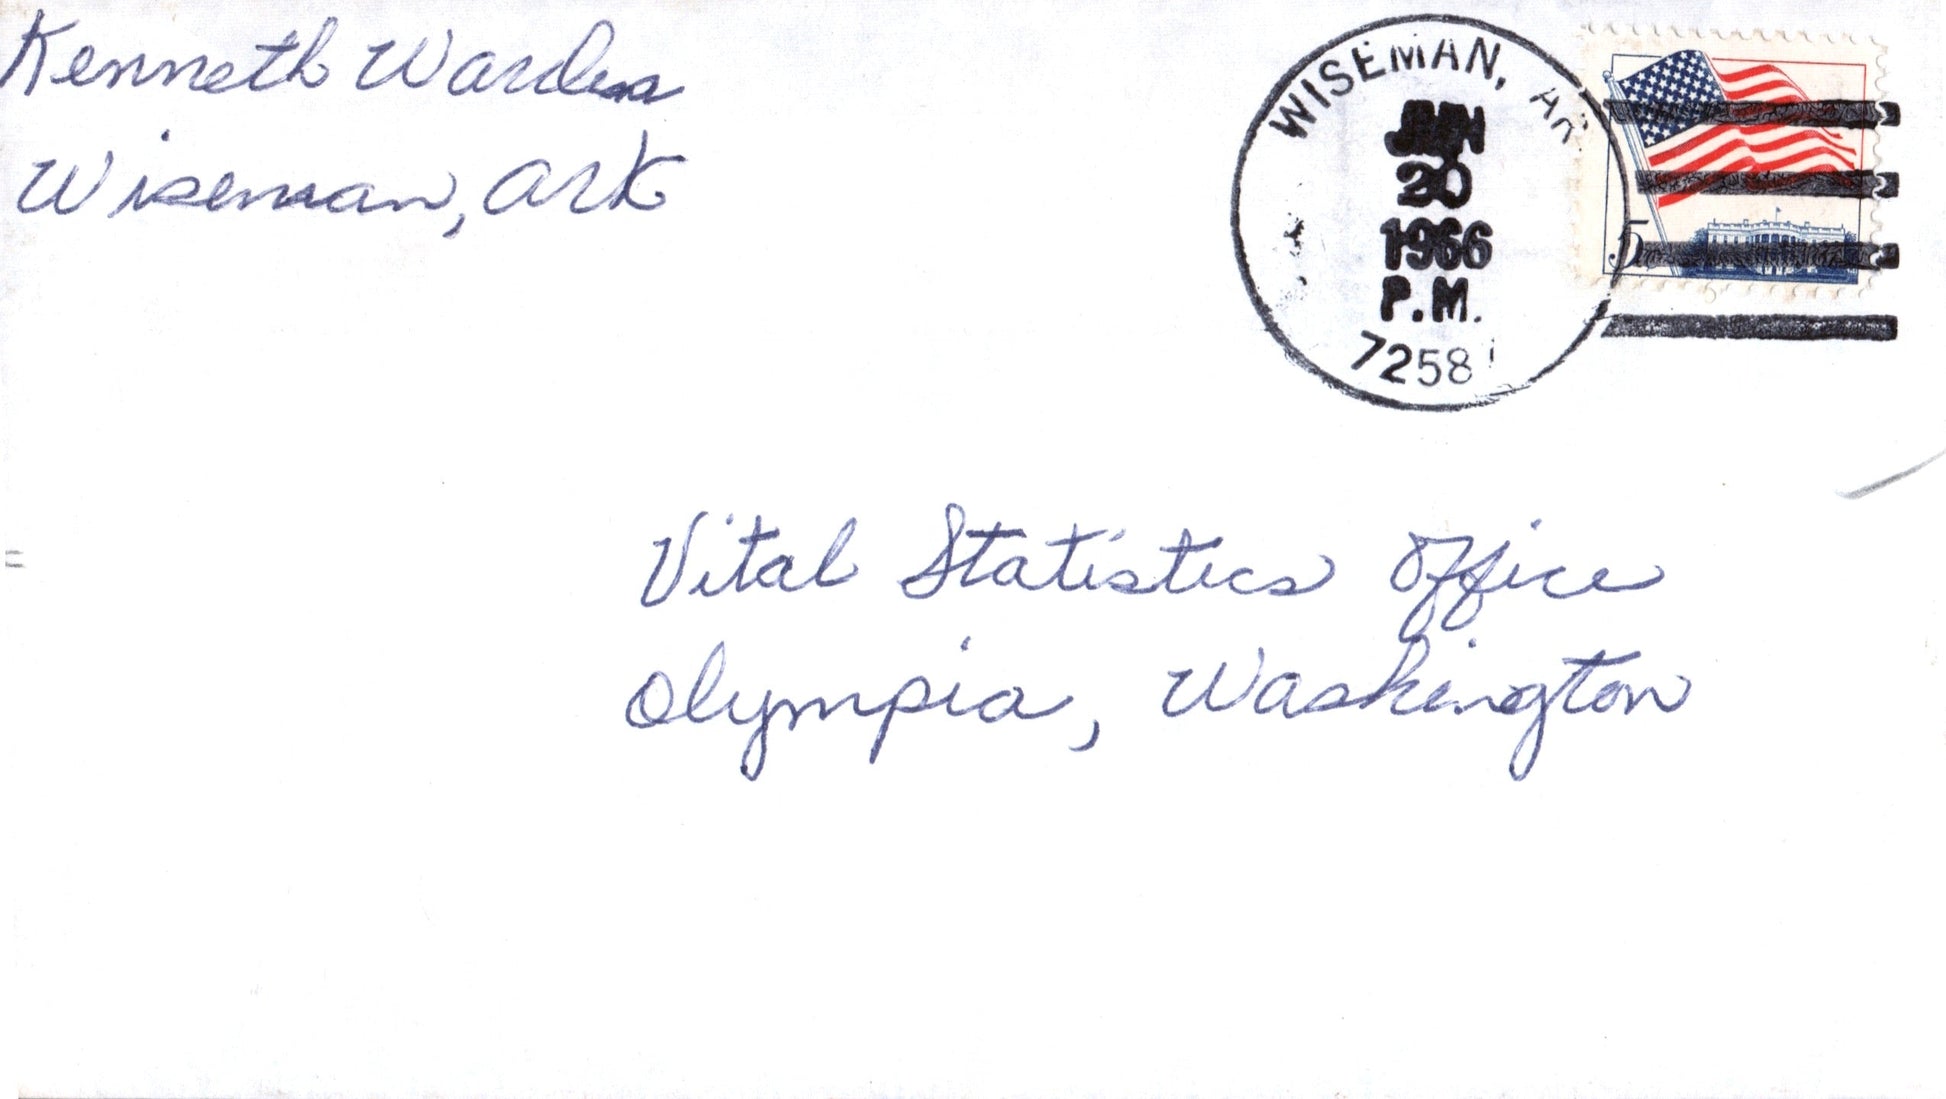 Kenneth
Wiseman, Ark
WISEMAN, AR
20
1966
P.M.
7258
5c
Vital Statistics Office
Olympia, Washington